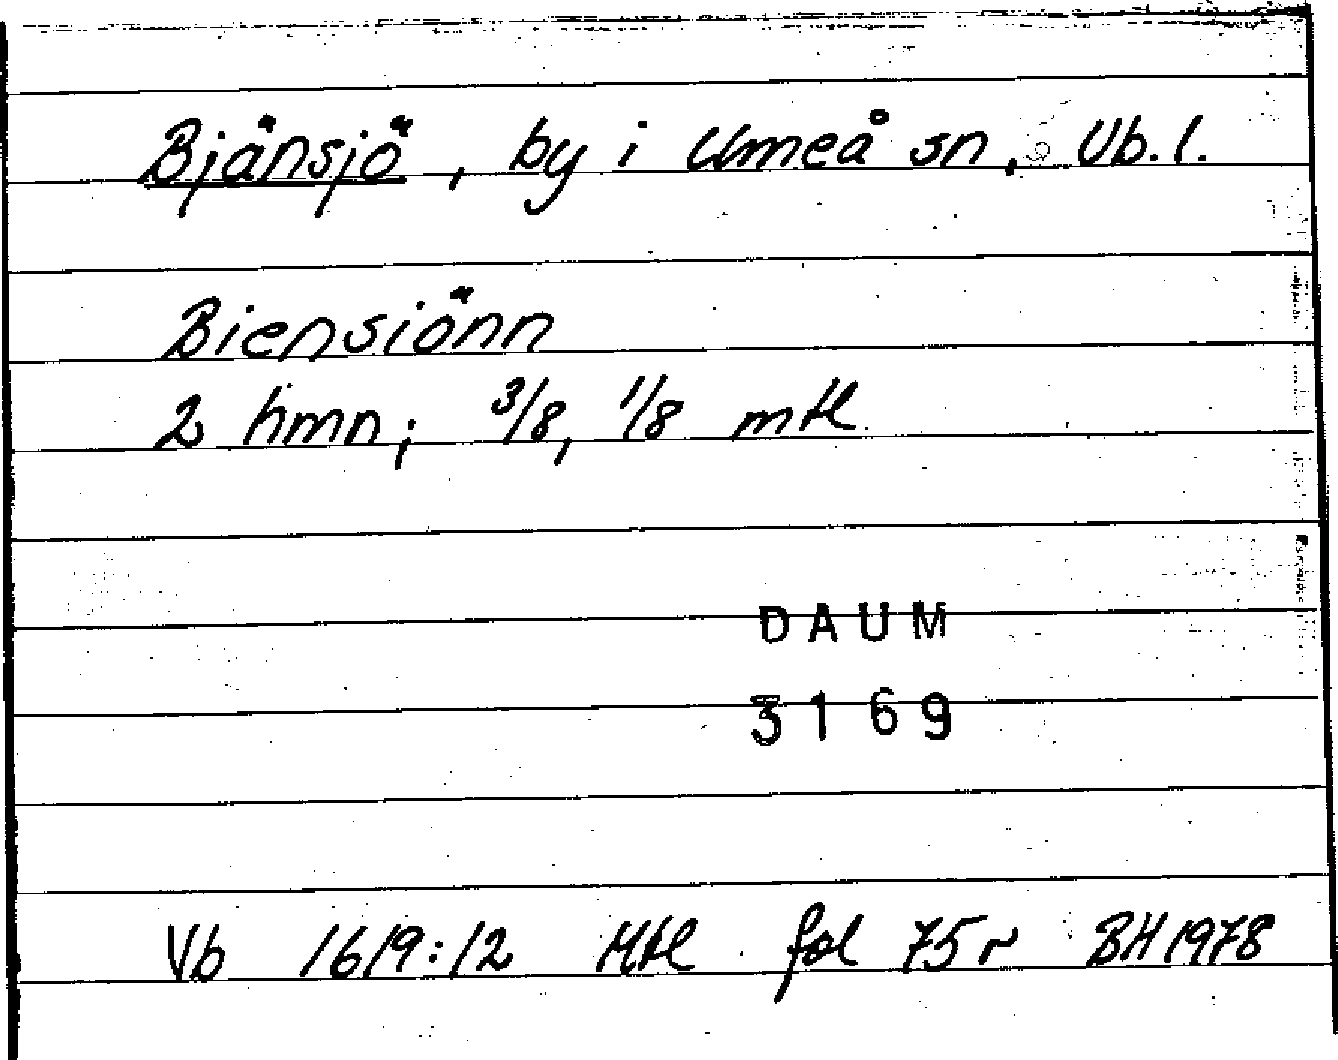 Bjänsjö, by i Umeå sn, Vb. l.
Biensiönn
2 hmn; 3/8, 1/8 mtl
DAUM
3169
Vb 1619:12 Mtl fol 75r BH 1978